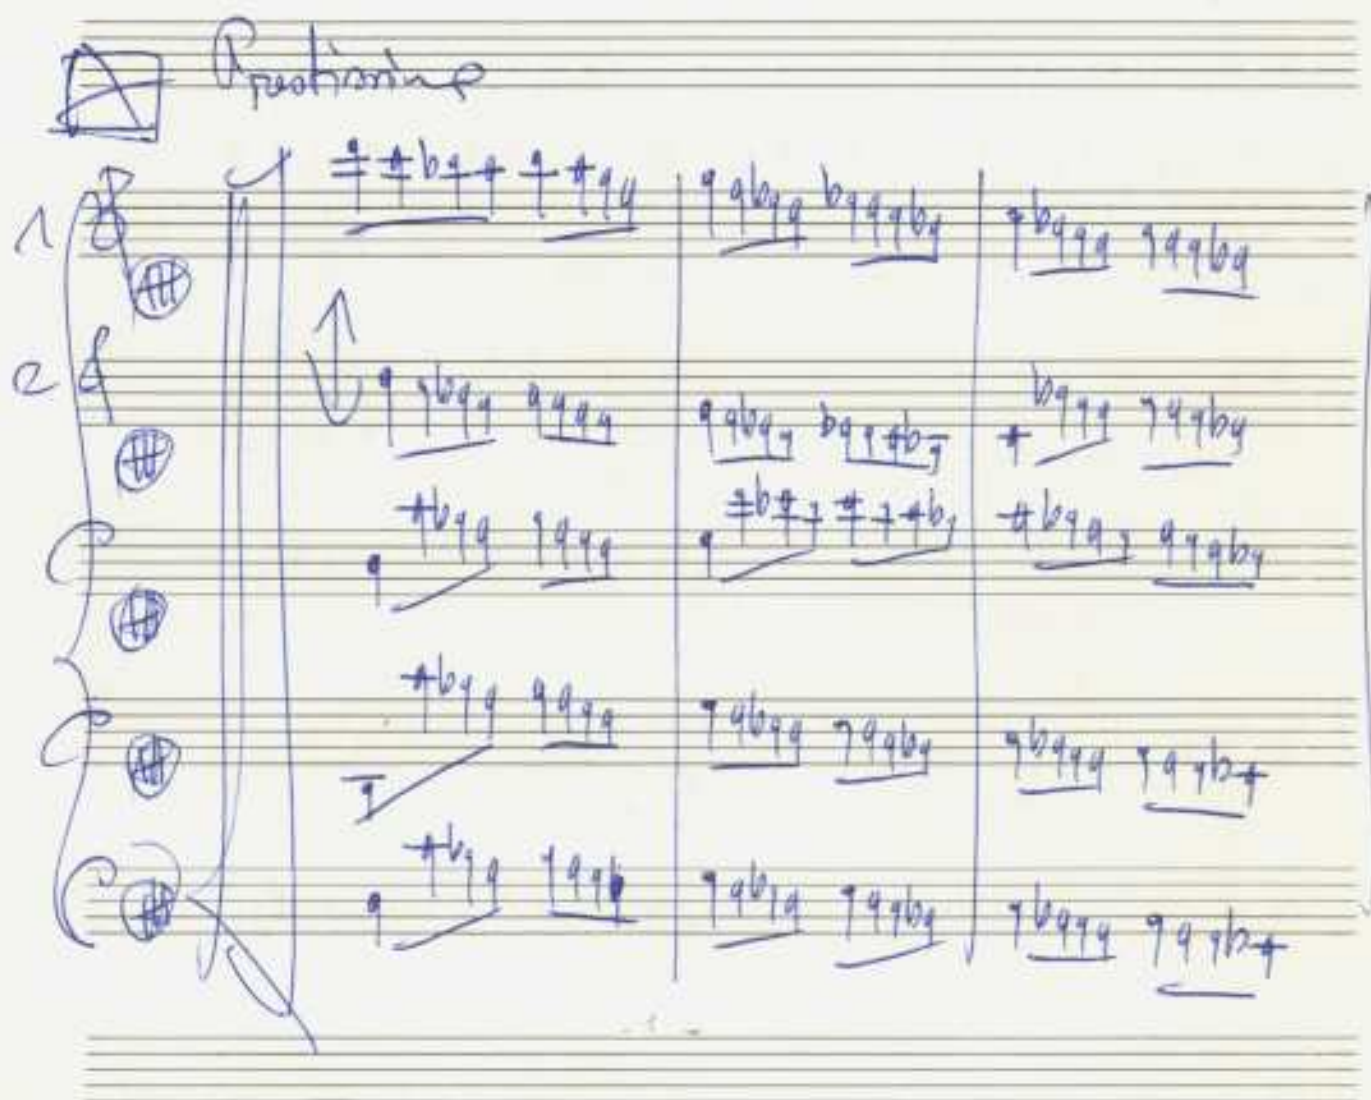 Prestissimo
1
2